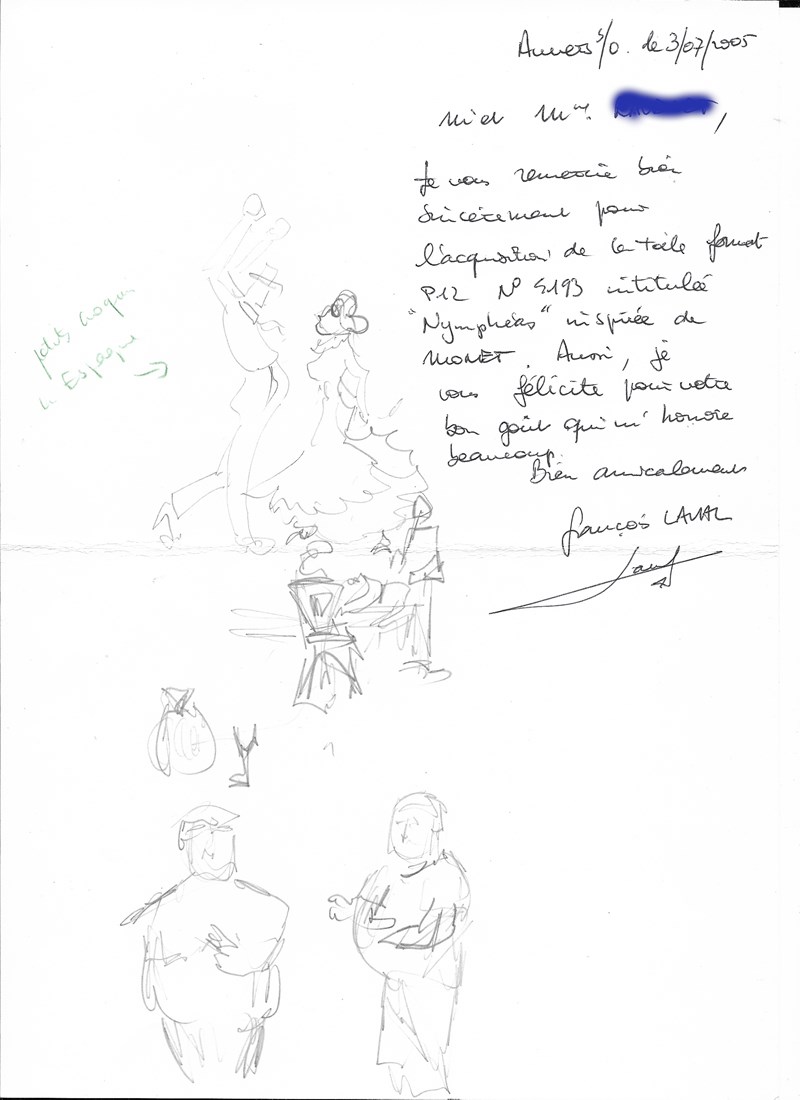 Auvers s/O. le 3/07/2005
M. et Mme.
Je vous remercie bien
sincèrement pour
l'acquisition de la toile format
P12 N° 5193 intitulée
"Nymphéas" inspirée de
MONET. Aussi, je
vous félicite pour votre
bon goût qui m'honore
beaucoup.
Bien amicalement
François LAVAL
petits croquis
en Espagne →